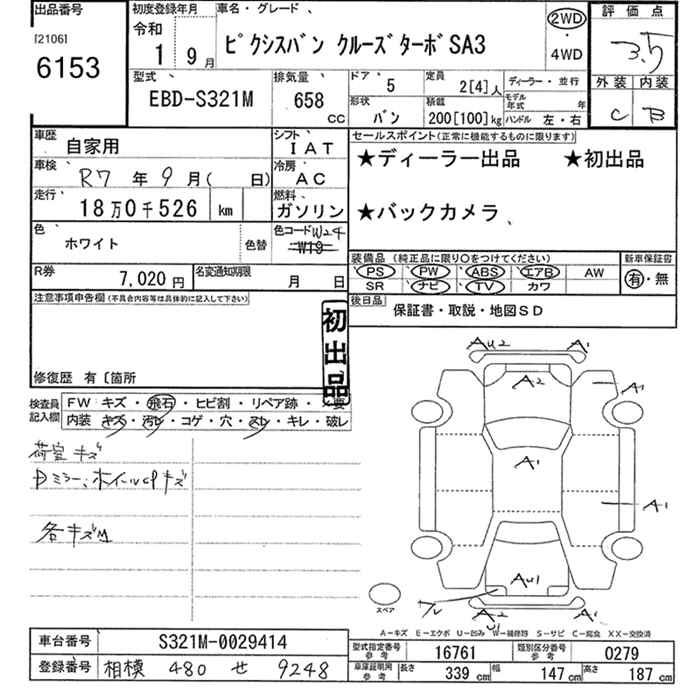 出品番号
[2106]
6153
初度登録年月
令和
1 9月
車名・グレード、
ピクシスバン クルーズターボSA3
2WD
・
4WD
評価点
3.5
外装 内装
C B
型式、
EBD-S321M
排気量、
658
CC
ドア、
5
定員
2[4]人
ディーラー・並行
モデル年式 年
形状
バン
積載
200[100]kg
ハンドル 左・右
車歴
自家用
シフト、
IAT
セールスポイント(正常に機能するものに限ります)
★ディーラー出品 ★初出品
★バックカメラ
車検、
R7年9月( 日)
冷房、
AC
走行、
18万0千526 km
燃料、
ガソリン
色、
ホワイト
色替
色コード W24
W19
装備品(純正品に限り○をつけてください)
PS PW ABS エアB AW
SR ナビ TV カワ
新車保証書
有・無
R券
7,020円
名変通知期限
月 日
後日品
保証書・取説・地図SD
注意事項申告欄(不具合内容等は具体的に記入して下さい)
初出品
修復歴 有〔箇所
検査員記入欄
FW キズ・飛石・ヒビ割・リペア跡・X要
内装 キズ・汚レ・コゲ・穴・スレ・キレ・破レ
荷室キズ
Dミラー、ホイールCPキズ
各キズM
AU2 A1
A2
A1
A1
A1
AU1
A2
U1
A1
スペア
A-キズ E-エクボ U-凹み W-補修跡 S-サビ C-腐食 XX-交換済
車台番号
S321M-0029414
登録番号
相模 480 せ 9248
型式指定番号 参考
16761
類別区分番号 参考
0279
車庫証明用 参考
長さ
339 cm
幅
147 cm
高さ
187 cm